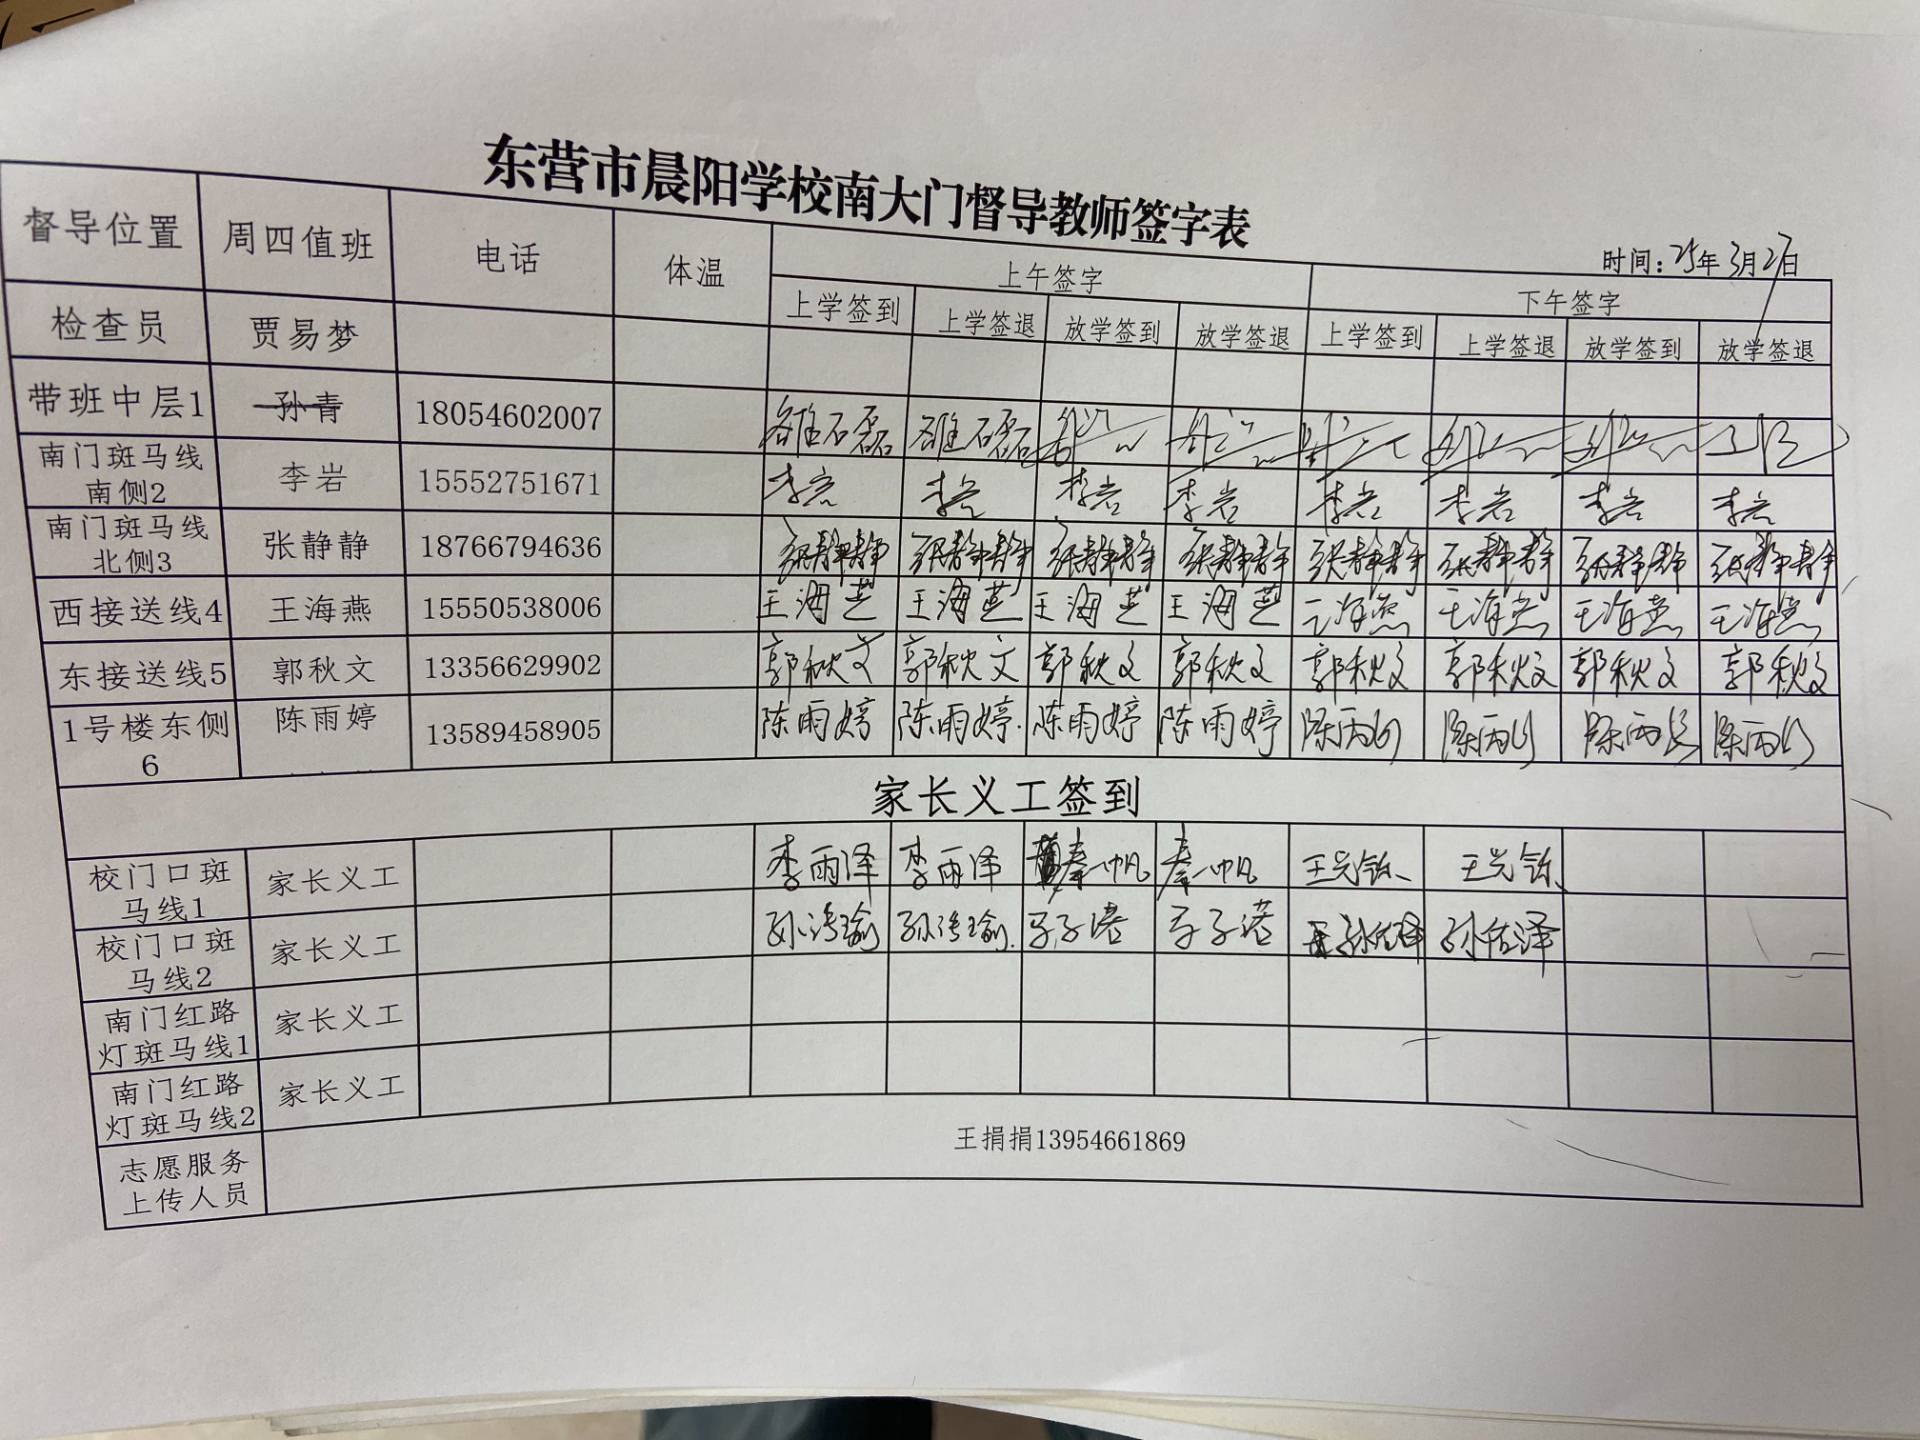 东营市晨阳学校南大门督导教师签字表
时间：25年3月27日
督导位置 周四值班 电话 体温 上午签字 下午签字
上学签到 上学签退 放学签到 放学签退 上学签到 上学签退 放学签到 放学签退
检查员 贾易梦
带班中层1 孙青 18054602007
南门斑马线南侧2 李岩 15552751671 李岩 李岩 李岩 李岩 李岩 李岩 李岩 李岩
南门斑马线北侧3 张静静 18766794636 张静静 张静静 张静静 张静静 张静静 张静静 张静静 张静静
西接送线4 王海燕 15550538006 王海燕 王海燕 王海燕 王海燕 王海燕 王海燕 王海燕 王海燕
东接送线5 郭秋文 13356629902 郭秋文 郭秋文 郭秋文 郭秋文 郭秋文 郭秋文 郭秋文 郭秋文
1号楼东侧6 陈雨婷 13589458905 陈雨婷 陈雨婷 陈雨婷 陈雨婷 陈雨婷 陈雨婷 陈雨婷 陈雨婷
家长义工签到
校门口斑马线1 家长义工 李雨泽 李雨泽 秦一帆 秦一帆
校门口斑马线2 家长义工 孙佑泽 孙佑泽
南门红路灯斑马线1 家长义工
南门红路灯斑马线2 家长义工
志愿服务上传人员 王捐捐13954661869